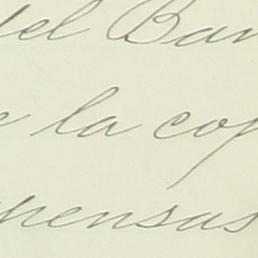 del Ban
e la cop
pensas